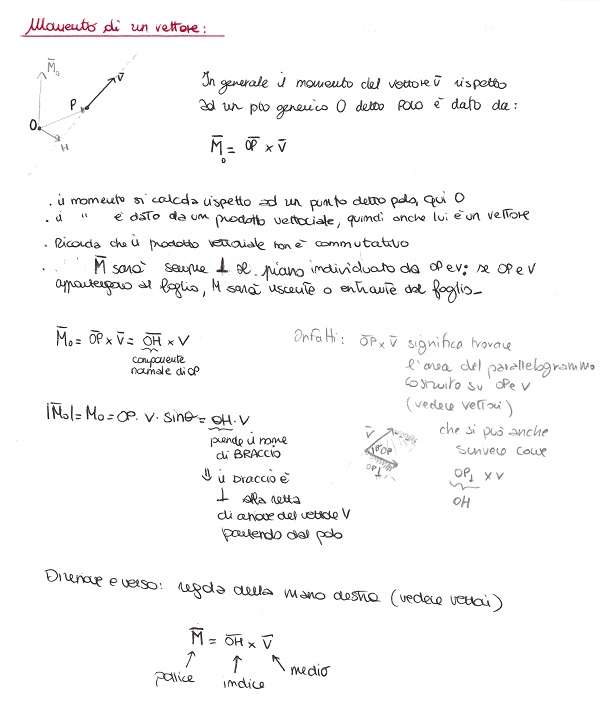 Momento di un vettore:
M̄₀
V̄
P
O
H
In generale il momento del vettore v̄ rispetto
ad un pto generico O detto polo è dato da:
M̄₀ = OP̄ x V̄
. il momento si calcola rispetto ad un punto detto polo, qui O
. il " è dato da un prodotto vettoriale, quindi anche lui è un vettore
. Ricorda che il prodotto vettoriale non è commutativo
. M̄ sarà sempre ⊥ al piano individuato da OP e v; se OP e V
appartengono al foglio, M sarà uscente o entrante dal foglio_
M̄₀ = OP̄ x V̄ = OH̄ x V
componente
normale di OP
Infatti: OP̄ x v̄ significa trovare
l'area del parallelogrammo
costruito su OP e V
(vedere vettori)
|M̄₀| = M₀ = OP · V · sinθ = OH · V
prende il nome
di BRACCIO
⇓ il braccio è
⊥ alla retta
di azione del vettore V
partendo dal polo
V̄
θ
OP
OP⊥
che si può anche
scrivere come
OP⊥ x V
OH
Direzione e verso: regola della mano destra (vedere vettori)
M̄ = OH̄ x V̄
pollice
indice
medio